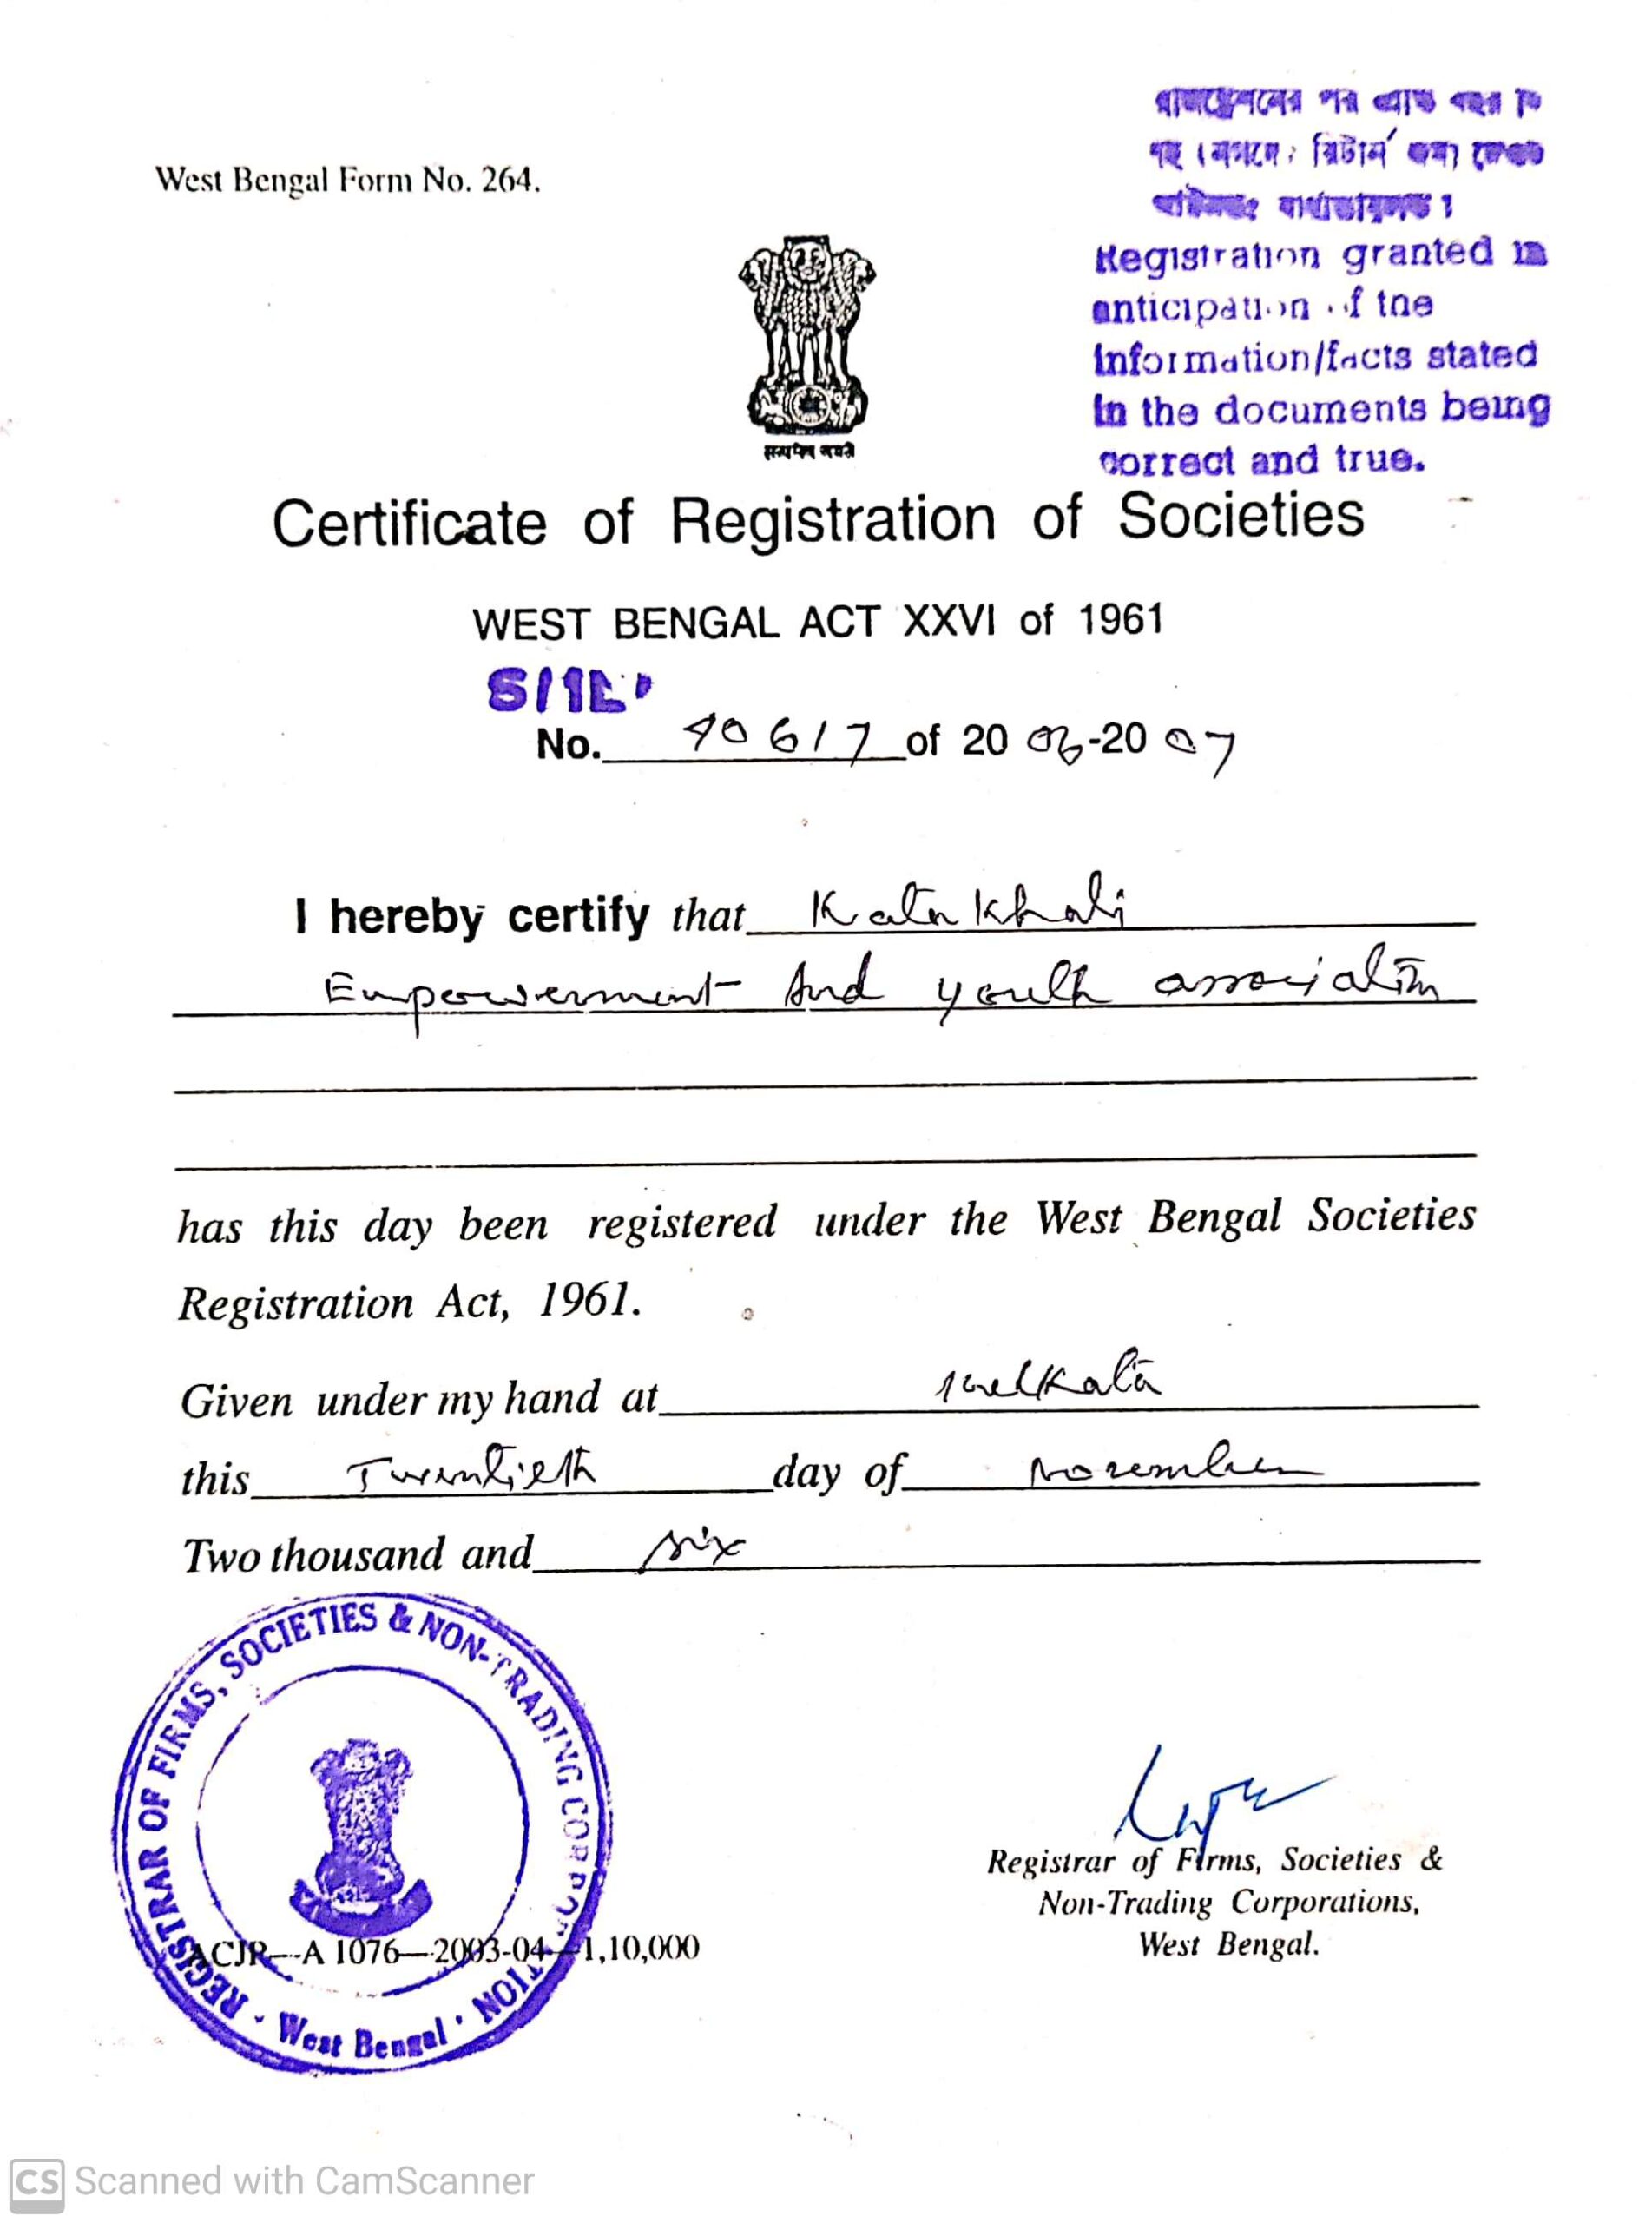 West Bengal Form No. 264.
Registration granted in
anticipation of the
Information/facts stated
In the documents being
correct and true.
सत्यमेव जयते
Certificate of Registration of Societies
WEST BENGAL ACT XXVI of 1961
S/1L
No. 40617 of 2006-2007
I hereby certify that Katakhali
Empowerment And youth association
has this day been registered under the West Bengal Societies
Registration Act, 1961.
Given under my hand at Kolkata
this Twentieth day of November
Two thousand and six
REGISTRAR OF FIRMS, SOCIETIES & NON-TRADING CORPORATION
West Bengal
Registrar of Firms, Societies &
Non-Trading Corporations,
West Bengal.
ACJR—A 1076—2003-04—1,10,000
CS Scanned with CamScanner